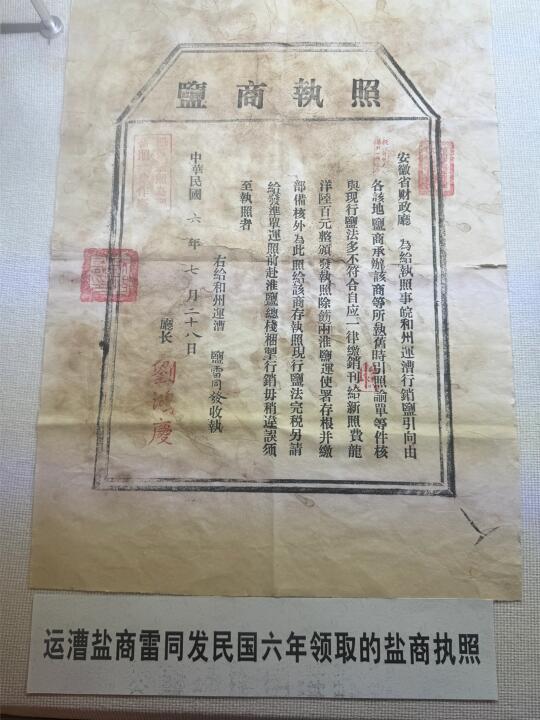 鹽商執照
安徽省财政廳 為給執照事皖和州運漕行銷鹽引向由
各該地鹽商承辦該商等所執舊時引照諭單等件核
與現行鹽法多不符合自应一律缴銷刊給新照費龍
洋陸百元整頒發執照除飭兩淮鹽運使署存根并繳
部備核外為此照給該商存執照現行鹽法完税另請
給發準單運照前赴淮鹽總棧梱掣行銷毋稍違誤须
至執照者
右给和州運漕 鹽雷同發收執
中華民國六年七月二十八日
廳长 劉鴻慶
运漕盐商雷同发民国六年领取的盐商执照